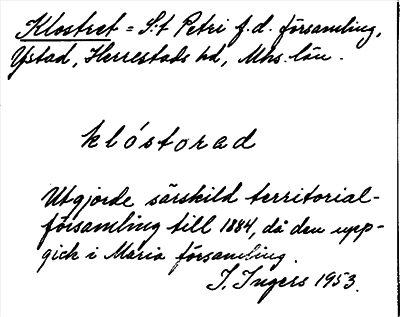 Klostret = S:t Petri f.d. församling,
Ystad, Herrestads hd, Mhs. län.
klóstorad
Utgjorde särskild territorial-
församling till 1884, då den upp-
gick i Maria församling.
I. Ingers 1953.